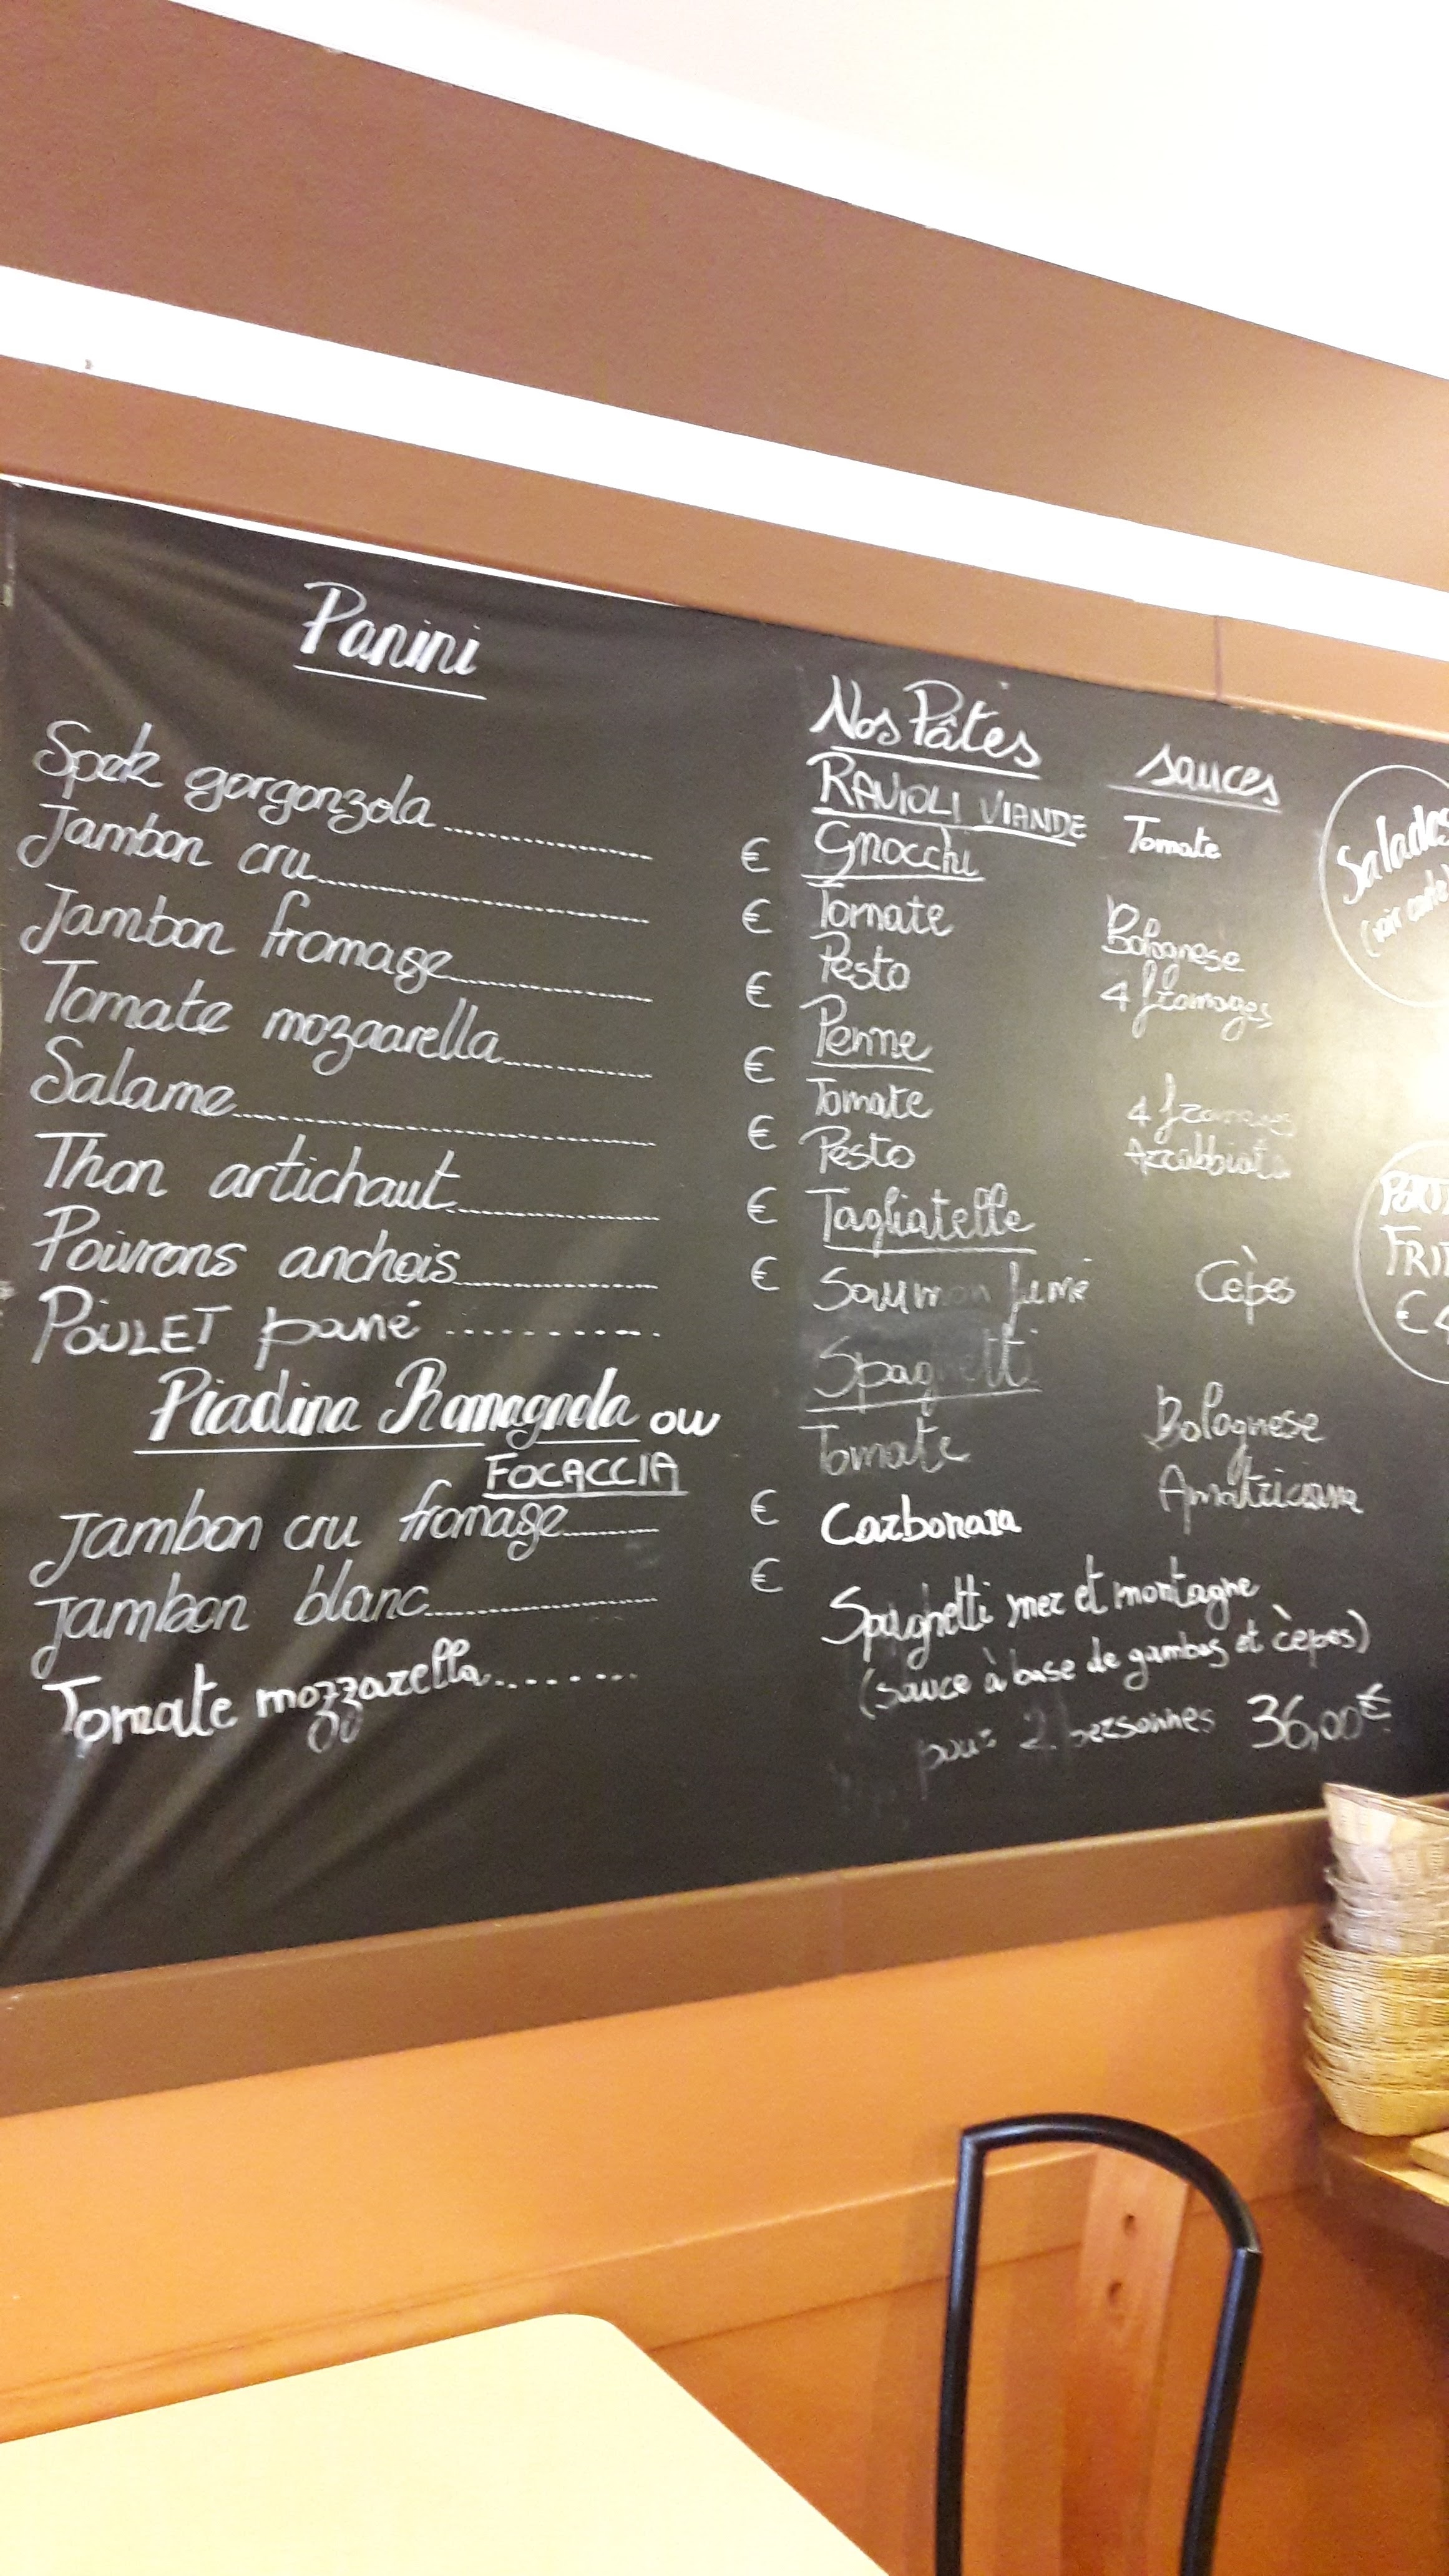 Panini
Speck gorgonzola ........................ €
Jambon cru ........................ €
Jambon fromage ........................ €
Tomate mozaarella ........................ €
Salame ........................ €
Thon artichaut ........................ €
Poivrons anchois ........................ €
POULET pané ...........
Piadina Romagnola ou
FOCACCIA
Jambon cru fromage ............ €
Jambon blanc ........................ €
Tomate mozzarella ........
Nos Pâtes sauces
RAVIOLI VIANDE Tomate
Gnocchi
Tomate Bolognese
Pesto 4 fromages
Penne
Tomate 4 fromages
Pesto Arrabbiata
Tagliatelle
Saumon fumé Cèpes
Spaghetti
Tomate Bolognese
Carbonara Amatriciana
Spaghetti mer et montagne
(sauce à base de gambas et cèpes)
pour 2 personnes 36,00€
Salades
(voir carte)
€4